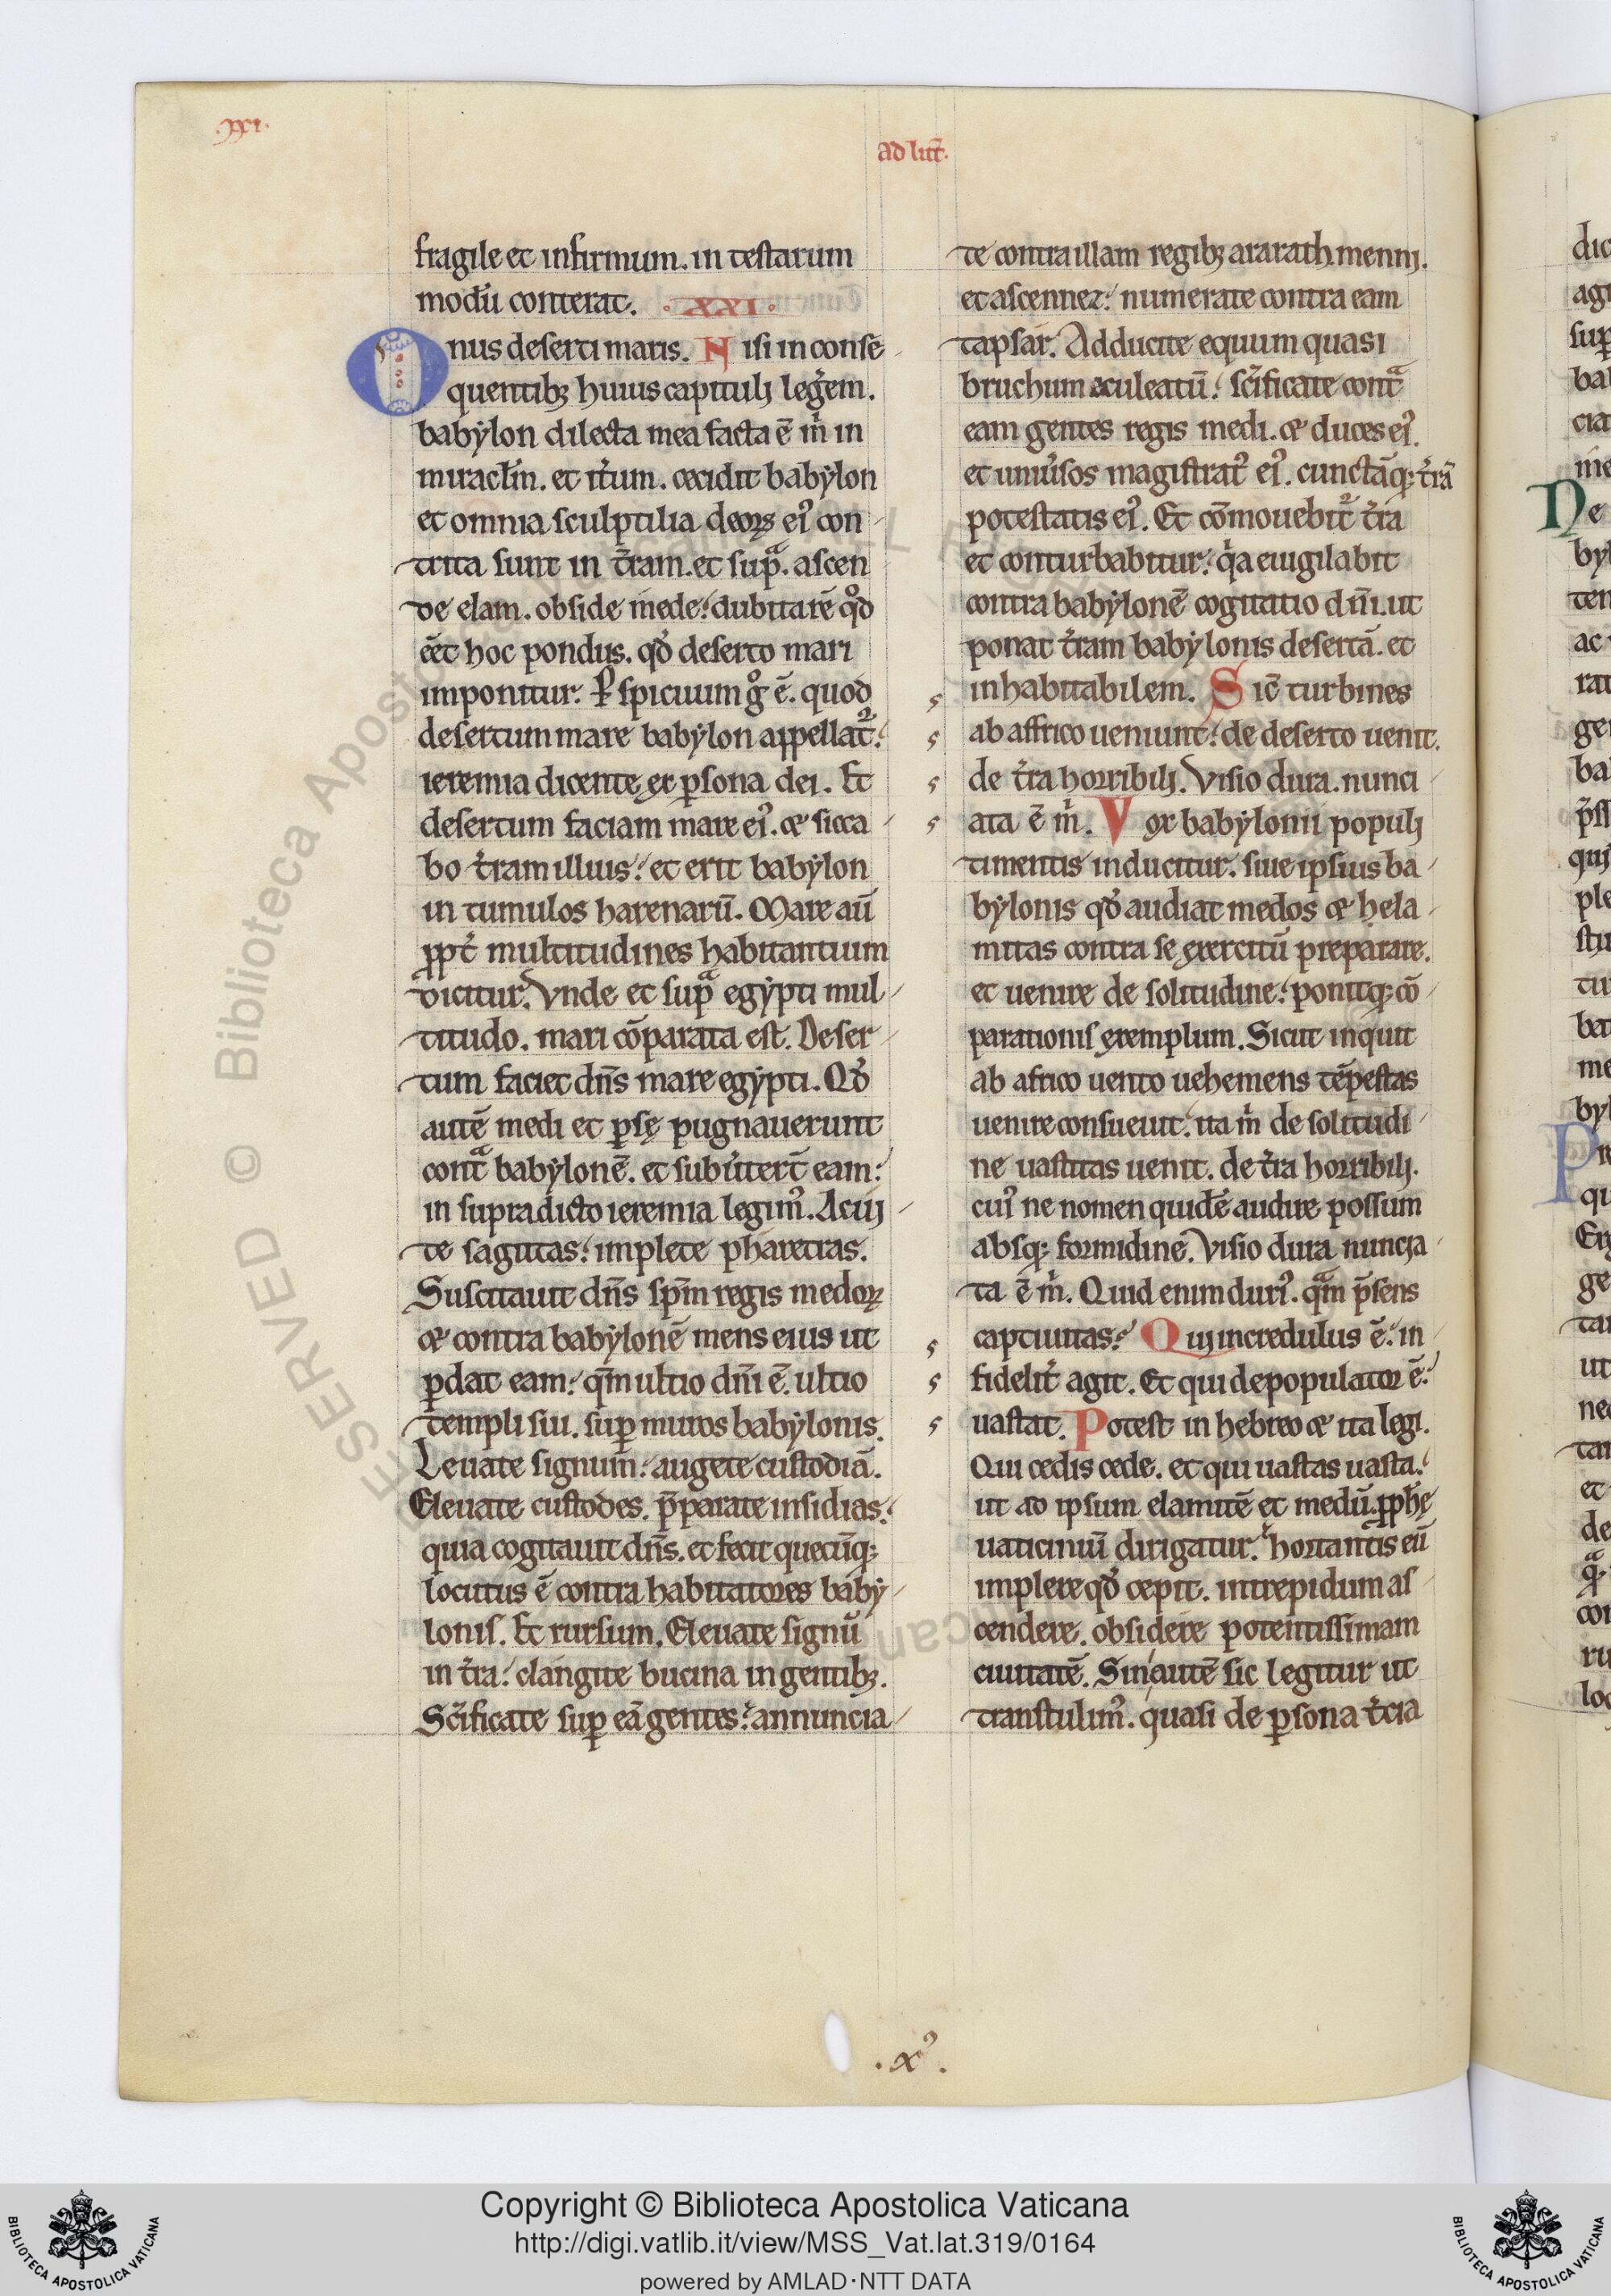 .xxi.
ad litt̄.
fragile et infirmum. in testarum
modū conterat. .XXI.
Onus deserti maris. Nisi in consē
quentibꝫ huius capitulj leg̓em.
babẏlon dilecta mea facta ē m̓ in
miracłm. et it̓um. cecidit babẏlon
et omnia sculptilia deoꝝ ei᾽ con
trita sunt in t̄ram. et supᷓ. ascen
de elam. obside mede: dubitarē qͦd
eēt hoc pondus. qd̓ deserto mari
imponitur. Ꝑspicuum gͦ ē. quod
desertum mare babẏlon appellat᷑:
ieremia dicente ex ꝑsona dei. Et
desertum faciam mare ei᾽. ⁊ sicca
bo t̓ram illius: et erit babẏlon
in tumulos harenarū. Mare aū
ꝓpt̓ multitudines habitantium
dicitur. Vnde et supᷓ egẏpti mul
titudo. mari cōparata est. Deser
tum faciet dn̄s mare egẏpti. Qd̓
autē medi et ꝑsę pugnauerunt
contᷓ babẏlonē. et subu̓tert̄ eam:
in supradicto ieremia legim᾽. Acuj
te sagittas: implete pharetras.
Suscitauit dn̄s sp̄m regis medoꝝ
⁊ contra babẏlonē mens eius ut
ꝑdat eam: qm̄ ultio dn̄i ē. ultio
templi sui. suꝑ muros babẏlonis.
Leuate signum: augete custodiā.
Eleuate custodes. p̄parate insidias:
quia cogitauit dn̄s. et fecit quecūqꝫ
locutus ē contra habitatores babẏ
lonis. Et rursum. Eleuate signū
in t̓ra: clangite bucina in gentibꝫ.
Sc̄ificate suꝑ eā gentes: annuncia
te contra illam regibꝫ ararath. mennj.
et ascennez: numerate contra eam
tapsar. Adducite equum quasi
bruchum aculeatū: sc̄ificate contᷓ
eam gentes regis medi. ⁊ duces ei᾽.
et uniu̓sos magistrat᾽ ei᾽. cunctāqꝫ t̓rā
potestatis ei᾽. Et cōmouebit᷑ t̓ra
et conturbabitur: qͥa euigilabit
contra babẏlonē cogitatio dn̄i. ut
ponat t̓ram babẏlonis desertā. et
inhabitabilem. Sic̄ turbines
ab affrico ueniunt: de deserto uenit.
de t̓ra horribilj. Visio dura. nunci
ata ē m̓. Vox babẏlonii populj
timentis inducitur. siue ipsius ba
bẏlonis qd̓ audiat medos ⁊ hela
mitas contra se exercitū preparare.
et uenire de solitudine: ponitqꝫ cō
parationis exemplum. Sicut inquit
ab africo uento uehemens tēpestas
uenire consueuit: ita m̓ de solitudi
ne uastitas uenit. de t̓ra horribilj.
cui᾽ ne nomen quidē audire possum
absqꝫ formidine. Visio dura nuncia
ta ē m̓. Quid enim duri᾽. qᷓm p̄sens
captiuitas: Quj incredulus ē: in
fidelit̓ agit. Et qui depopulator ē:
uastat. Potest in hebreo ⁊ ita legi.
Qui cedis cede. et qui uastas uasta:
ut ad ipsum elamitē et medū. ꝓph̄ę
uaticiniū dirigatur. hortant̓is eū
implere qd̓ cepit. intrepidum as
cendere. obsidere potentissimam
ciuitatē. Sin autē sic legitur ut
transtulim᾽. quasi de ꝑsona t̓cia
.x᾽.
Copyright © Biblioteca Apostolica Vaticana
http://digi.vatlib.it/view/MSS_Vat.lat.319/0164
powered by AMLAD·NTT DATA
BIBLIOTECA APOSTOLICA VATICANA
BIBLIOTECA APOSTOLICA VATICANA